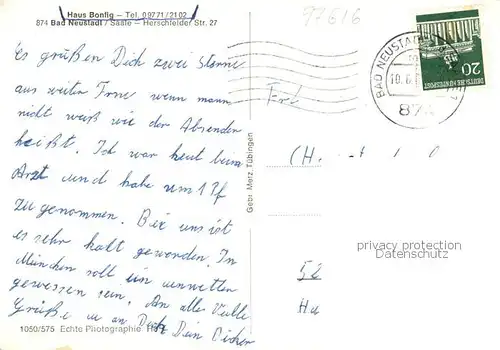 Haus Bonfig – Tel. 09771/2102
874 Bad Neustadt / Saale – Herschfelder Str. 27
97616
Es grüßen Dich zwei Sterne
aus weiter Ferne wenn mann
nicht weiß wie der Absender
heißt. Ich war heut beim
Arzt und habe um 1 Pf
zugenommen. Bei uns ist
es sehr kalt geworden. In
München soll ein unwetter
gewesen sein. An alle Viele
Grüße u an Dich Dein
Frl
Gebr. Metz, Tübingen
BAD NEUSTADT
10.6.
874
20
DEUTSCHE BUNDESPOST
(H
52
Ha
privacy protection
Datenschutz
1050/575 Echte Photographie